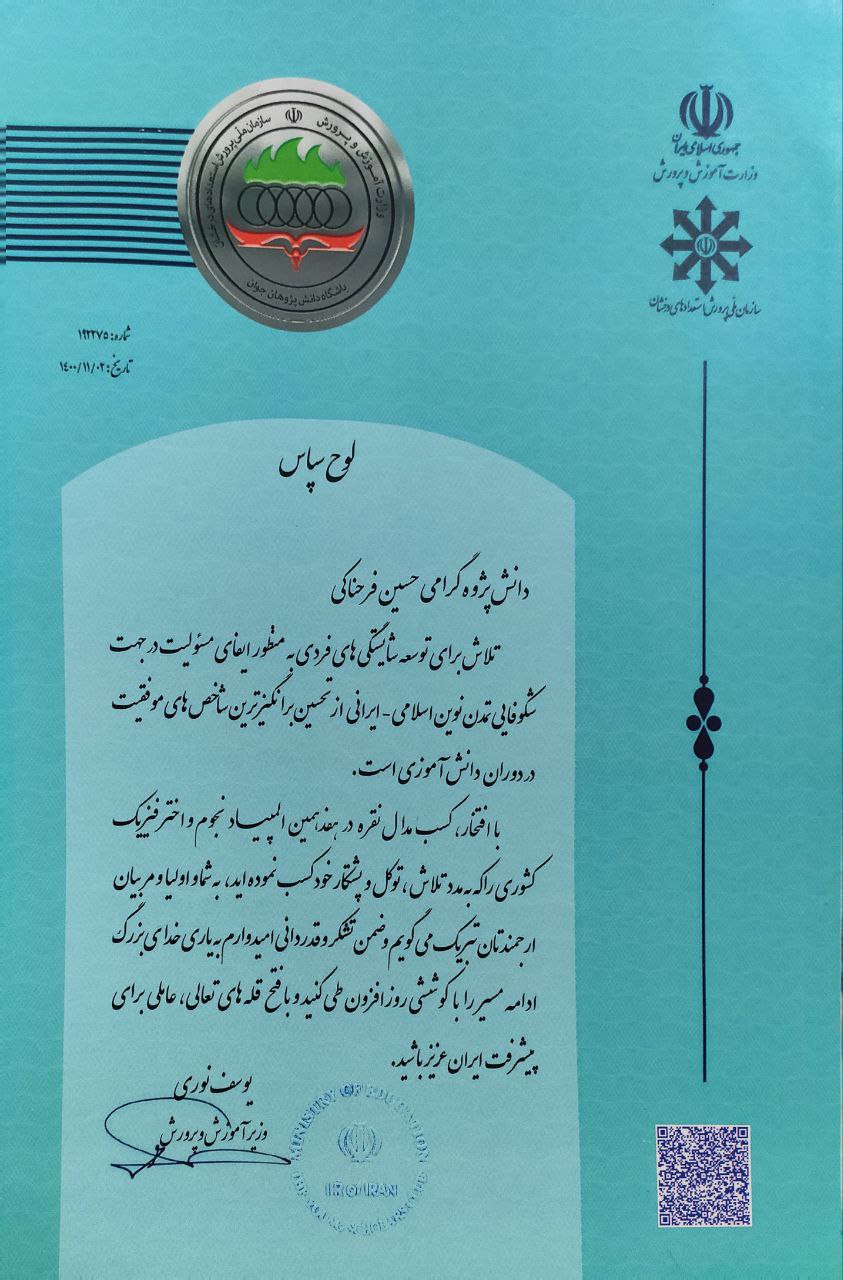 جمهوری اسلامی ایران
وزارت آموزش و پرورش
سازمان ملی پرورش استعدادهای درخشان
وزارت آموزش و پرورش
سازمان ملی پرورش استعدادهای درخشان
باشگاه دانش پژوهان جوان
شماره: ۱۹۲۲۷۵
تاریخ: ۱۴۰۰/۱۱/۰۲
لوح سپاس
دانش پژوه گرامی حسین فرحناکی
تلاش برای توسعه شایستگی های فردی به منظور ایفای مسئولیت در جهت
شکوفایی تمدن نوین اسلامی - ایرانی از تحسین برانگیزترین شاخص های موفقیت
در دوران دانش آموزی است.
با افتخار، کسب مدال نقره در هفدهمین المپیاد نجوم و اخترفیزیک
کشوری را که به مدد تلاش، توکل و پشتکار خود کسب نموده اید، به شما و اولیا و مربیان
ارجمندتان تبریک می گویم و ضمن تشکر و قدردانی امیدوارم به یاری خدای بزرگ
ادامه مسیر را با کوششی روزافزون طی کنید و با فتح قله های تعالی، عاملی برای
پیشرفت ایران عزیز باشید.
یوسف نوری
وزیر آموزش و پرورش
MINISTRY OF EDUCATION
I.R.OF IRAN